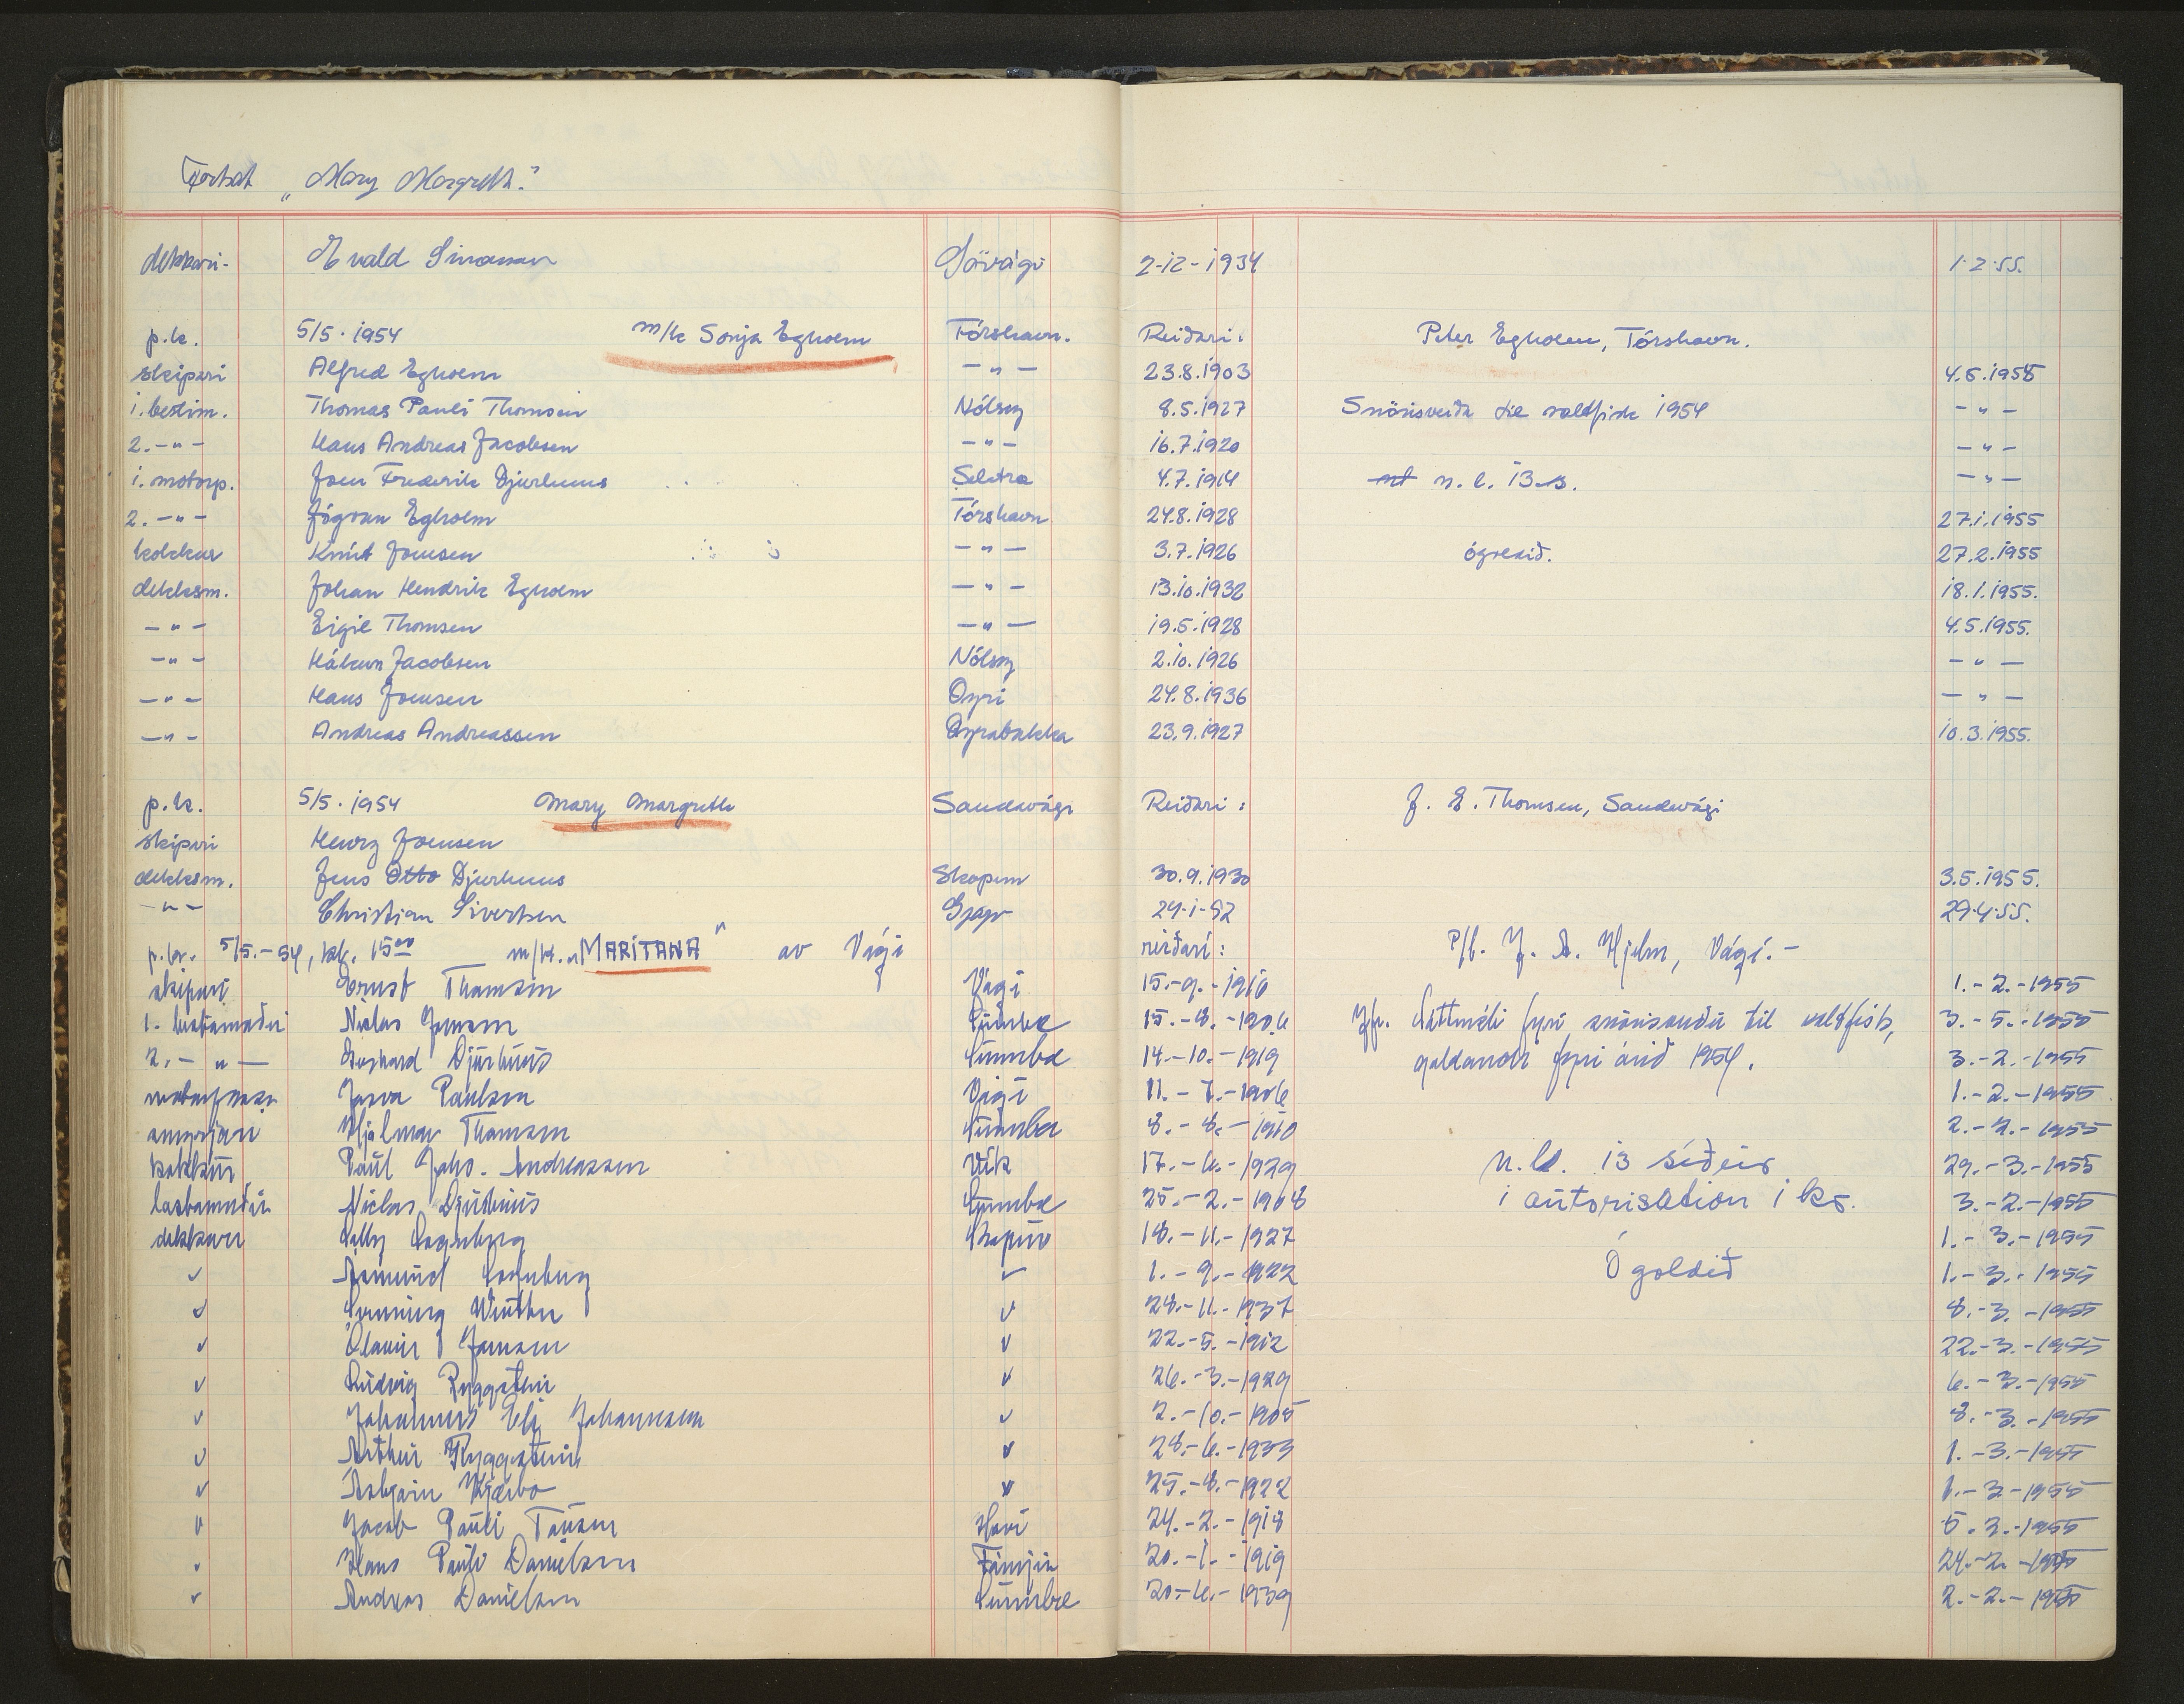 Fortsat "Mary Margreth."
dekkari- Evald Simonsen Sörvági 2-12-1934 1.2.55.
p.k. 5/5.1954 m/k Sonja Egholm Tórshavn. Reiðari: Peter Egholm, Tórshavn.
skipari Alfred Egholm —"— 23.8.1903 4.5.1955
1. bestim. Thomas Pauli Thomsen Nólsoy 8.5.1927 Snörisveiða til saltfisk 1954 —"—
2. —"— Hans Andreas Jacobsen —"— 16.7.1920 —"—
1. motorp. Joen Frederik Djurhuus Seletræ 4.7.1914 n.l. 13 s. —"—
2. —"— Jógvan Egholm Tórshavn 24.8.1928 27.1.1955
kokkur Knút Joensen —"— 3.7.1926 ógreitt. 27.2.1955
dekksm. Johan Hendrik Egholm —"— 13.10.1932 18.1.1955.
—"— Eigil Thomsen —"— 19.5.1928 4.5.1955.
—"— Hákun Jacobsen Nólsoy 2.10.1926 —"—
—"— Hans Joensen Oyri 24.8.1936 —"—
—"— Andreas Andreassen Oyrabakka 23.9.1927 10.3.1955.
p.k. 5/5.1954 Mary Margreth Sandavági Reiðari: J. E. Thomsen, Sandavági
skipari Henry Joensen
dekksm. Jens Otto Djurhuus Skopun 30.9.1930 3.5.1955.
—"— Christian Sivertsen Gjógv 24-1-32 29.4.55.
p.kr. 5/5.-54, kl. 15ºº m/k. "MARITANA" av Vági reiðari: P/f. J. A. Hjelm, Vági.-
skipari Ernst Thomsen Vági 15.-9.-1910 1.-2.-1955
1. bestamaður Niclas Joensen Sumba 15.-8.-1906 Jfr. Sáttmáli fyri snörisveiðu til saltfisk, 3.-5.-1955
2. —"— Djurhuus Sumba 14.-10.-1919 galdandi fyri árið 1954. 3.-2.-1955
Poulsen Vági 11.-7.-1906 1.-2.-1955
smyrjari Hjalmar Thomsen Sumba 8.-8.-1910 2.-2.-1955
kokkur Paul Johs. Andreassen Vík 17.-6.-1929 n.l. 13 síður 29.-3.-1955
lastamaður Niclas Djurhuus Sumba 25.-2.-1908 i autorisation i ks. 3.-2.-1955
dekkari Sofby Sagnberg Skopun 18.-11.-1927 1.-3.-1955
✓ Jomund ✓ 1.-9.-1922 Ógoldið 1.-3.-1955
✓ Henning Winther ✓ 28.-11.-1937 8.-3.-1955
✓ Olavur J. Joensen ✓ 22.-5.-1912 22.-3.-1955
✓ Ludvig Ryggstein ✓ 26.-3.-1929 6.-3.-1955
✓ Johannus Eli Johannesen ✓ 2.-10.-1905 8.-3.-1955
✓ Arthur Ryggstein ✓ 28.-6.-1933 1.-3.-1955
✓ Asbjørn Kjærbo ✓ 25.-8.-1922 1.-3-1955
✓ Jacob Pauli Tausen Hovi 24.-2.-1918 5.3.-1955
✓ Hans Pauli Danielsen Fámjin 20.-1.-1919 24.-2.-1955
✓ Andreas Danielsen Sumba 20.-6.-1939 2.-2.-1955